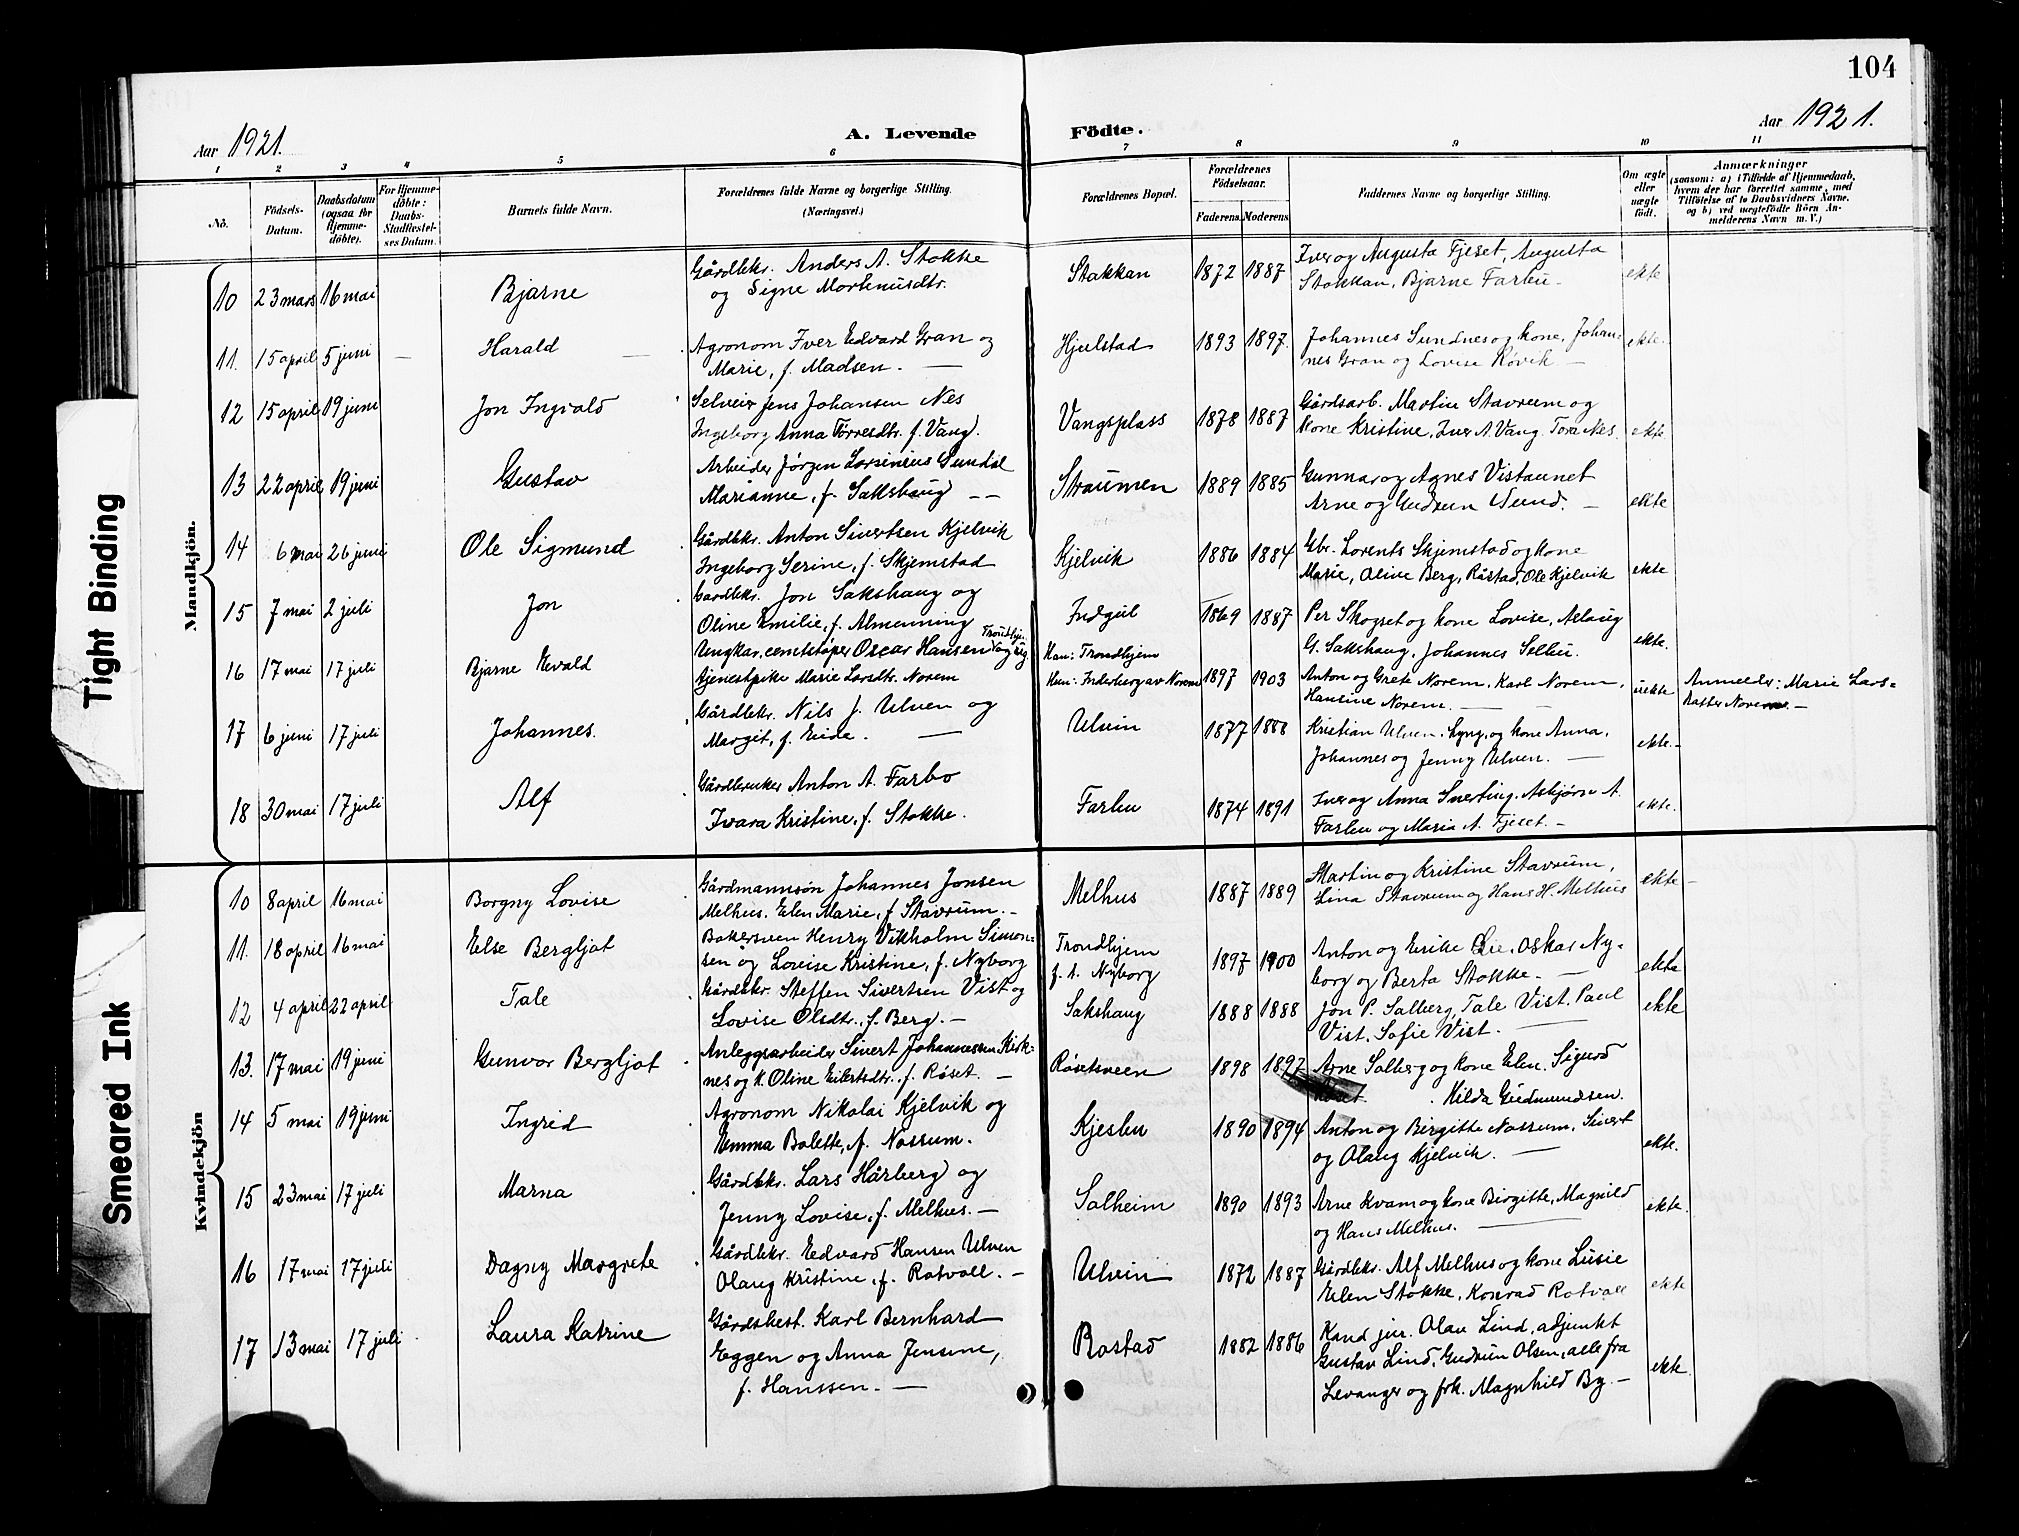 104
Aar 1921.
A. Levende Födte.
Aar 1921.
1 2 3 4 5 6 7 8 9 10 11
No.
Födsels-Datum.
Daabsdatum (ogsaa for Hjemme-döbte).
For Hjemme-döbte: Daabs-Stadfæstel-ses Datum.
Barnets fulde Navn.
Forældrenes fulde Navne og borgerlige Stilling. (Næringsvei.)
Forældrenes Bopæl.
Forældrenes Födselsaar.
Faderens. Moderens.
Faddernes Navne og borgerlige Stilling.
Om ægte eller uægte födt.
Anmærkninger
(saasom: a) i Tilfælde af Hjemmedaab, hvem der har forrettet samme, med Tilföielse af to Daabsvidners Navne, og b) ved uægtefödte Börn An-melderens Navn m. V.)
Mandkjön.
10 23 mars 16 mai Bjarne Gårdbkr. Anders A. Stokke og Signe Mortinusdtr. Stokkan 1872 1887 Iver og Augusta Fjeset, Augusta Stokkan, Bjarne Farbu. ekte
11. 15 april 5 juni — Harald — Agronom Iver Edvard Gran og Marie, f. Madsen. — Hjulstad 1893 1897. Johannes Sundnes og kone, Johannes Gran og Lovise Røvik — ekte.
12 15 april 19 juni Jon Ingvald Selveier Jens Johansen Nes Ingeborg Anna Torresdtr. f. Vang. Vangsplass 1878 1887 Gårdsarb. Martin Stavrum og kone Kristine, Iver A. Vang. Tora Nes. ekte
13 22 april 19 juni Gustav Arbeider Jørgen Lorsenius Sundal Marianne, f. Sakshaug — — Straumen 1889 1885 Gunnar og Agnes Vistaunet Arne og Gudrun Sund. — ekte
14 6 mai 26 juni Ole Sigmund Gårdbkr. Anton Sivertsen Kjelvik Ingeborg Serine, f. Skjemstad Kjelvik 1886 1884 Gbr. Lorents Skjemstad og kone Marie, Oline Berg, Råstad, Ole Kjelvik ekte
15 7 mai 2 juli Jon Gardbkr. Jon Sakshaug og Oline Emilie, f. Almenning Indgul 1869 1887 Per Skogset og kone Lovise, Aslaug G. Sakshaug, Johannes Selbu. ekte.
16 17 mai 17 juli Bjarne Evald Ungkar, cemtstøper Oscar Hansen Vang Trondhjem og tjenestpike Marie Larsdtr. Norem Han: Trondhjem Hun: Inderberg av Norem 1897 1903 Anton og Grete Norem, Karl Norem, Hansine Norem. — — uekte Anmelder: Marie Lars=datter Norem. —
17 6 juni 17 juli Johannes. Gårdbkr. Nils J. Ulven og Margit, f. Eida. — Ulvin 1877 1888 Kristian Ulven, Lyng, og kone Anna, Johannes og Jenny Ulven. — ekte. —
18 30 mai 17 juli Alf Gårdbruker Anton A. Farbo Ivara Kristine, f. Stokke. Farbu 1874 1891 Iver og Anna Sverting, Asbjørn A. Farbu og Maria A. Fjeset. — ekte.
Kvindekjön
10 8 april 16 mai Borgny Lovise Gårdmannsøn Johannes Jonsen Melhus. Elen Marie, f. Stavrum. — Melhus 1887 1889 Martin og Kristine Stavrum, Lina Stavrum og Hans H. Melhus ekte —
11. 18 april 16 mai Else Bergljot Bakersven Henry Vikholm Simon=sen og Lovise Kristine, f. Nyborg Trondhjem f. t. Nyborg 1897 1900 Anton og Eirike Lie, Oskar Ny=borg og Berta Stokke. — ekte
12 4 april 22 april Tale Gårdbkr. Steffen Sivertsen Vist og Lovise Olsdtr., f. Berg. — Sakshaug 1888 1888 Jon P. Salberg, Tale Vist, Paul Vist, Sofie Vist. — ekte
13. 17 mai 19 juni Gunvor Bergljot Anleggsarbeider Sivert Johannessen Kirk=nes og k. Oline Eilertsdtr., f. Røset. — Røsetsveen 1898 1897 Arne Salberg og kone Elen, Sigurd Røset. Hilda Gudmundsen.
14 5 mai 19 juni Ingrid Agronom Nikolai Kjelvik og Emma Bolette, f. Nossum. Kjesbu 1890 1894 Anton og Birgitte Nossum, Sivert og Olaug Kjelvik. — ekte.
15 23 mai 17 juli Marna Gårdbkr. Lars Hårberg og Jenny Lovise, f. Melhus. — Solheim 1890 1893 Arne Kvam og kone Birgitte, Magnild og Hans Melhus. — ekte.
16 17 mai 17 juli Dagny Margrete Gårdbkr. Edvard Hansen Ulven Olaug Kristine, f. Rotvoll. — Ulvin 1872 1887 Gårdbkr. Alf Melhus og kone Lusie Elen Stokke, Konrad Rotvoll ekte
17 13 mai 17 juli Laura Katrine Gårdsbest. Karl Bernhard Eggen og Anna Jensine, f. Hanssen. — Rostad 1882 1886 Kand jur. Olav Lind, adjunkt Gustav Lind, Gudrun Olsen, alle fra Levanger og frk. Magnhild By. — ekte.
Tight Binding
Smeared Ink